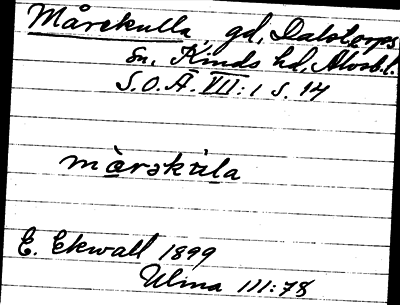 Mårekulla, gd, Dalstorps
sn, Kinds hd, Älvsb. l.
S.O.Ä. VII:1 s. 14
E. Ekwall 1899
Ulma 111:78